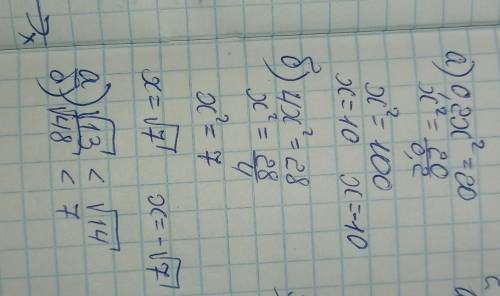 а) 0,2x² = 20
x² = 20/0,2
x² = 100
x = 10 x = -10
б) 4x² = 28
x² = 28/4
x² = 7
x = √7 x = -√7
а) √13 < √14
б) √48 < 7
x